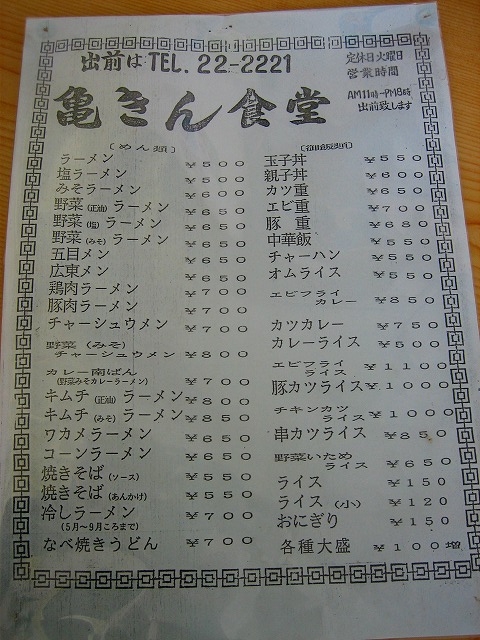 出前は TEL. 22-2221
定休日 火曜日
営業時間
AM11時~PM8時
出前致します
亀きん食堂
〔めん類〕
ラーメン ¥500
塩ラーメン ¥500
みそラーメン ¥600
野菜(正油)ラーメン ¥650
野菜(塩)ラーメン ¥650
野菜(みそ)ラーメン ¥650
五目メン ¥650
広東メン ¥650
鶏肉ラーメン ¥700
豚肉ラーメン ¥700
チャーシュウメン ¥700
野菜(みそ)
チャーシュウメン ¥800
カレー南ばん
(野菜みそカレーラーメン) ¥700
キムチ(正油)ラーメン ¥800
キムチ(みそ)ラーメン ¥850
ワカメラーメン ¥650
コーンラーメン ¥650
焼きそば(ソース) ¥550
焼きそば(あんかけ) ¥550
冷しラーメン ¥700
(5月~9月ころまで)
なべ焼きうどん ¥700
〔御飯類〕
玉子丼 ¥550
親子丼 ¥600
カツ重 ¥650
エビ重 ¥700
豚重 ¥680
中華飯 ¥550
チャーハン ¥550
オムライス ¥550
エビフライ
カレー ¥850
カツカレー ¥750
カレーライス ¥500
エビフライ
ライス ¥1100
豚カツライス ¥1000
チキンカツ
ライス ¥1000
串カツライス ¥850
野菜いため
ライス ¥650
ライス ¥150
ライス(小) ¥120
おにぎり ¥150
各種大盛 ¥100増